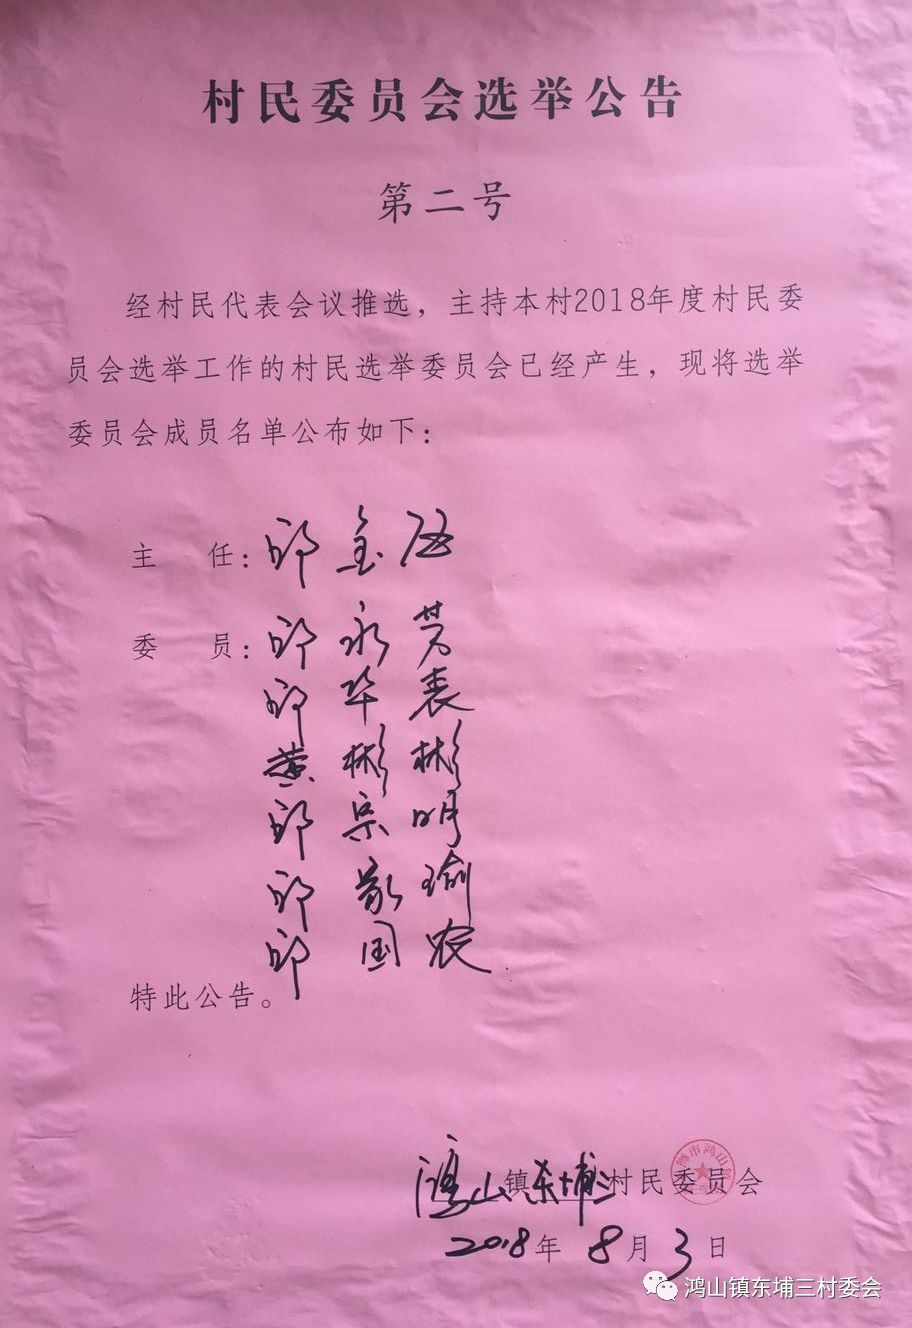 村民委员会选举公告
第二号
经村民代表会议推选，主持本村2018年度村民委
员会选举工作的村民选举委员会已经产生，现将选举
委员会成员名单公布如下：
主 任：邱金伍
委 员：邱永芳
邱华表
黄彬彬
邱宗明
邱瑜
邱国农
特此公告。
鸿山镇东埔三村民委员会
2018年8月3日
鸿山镇东埔三村委会